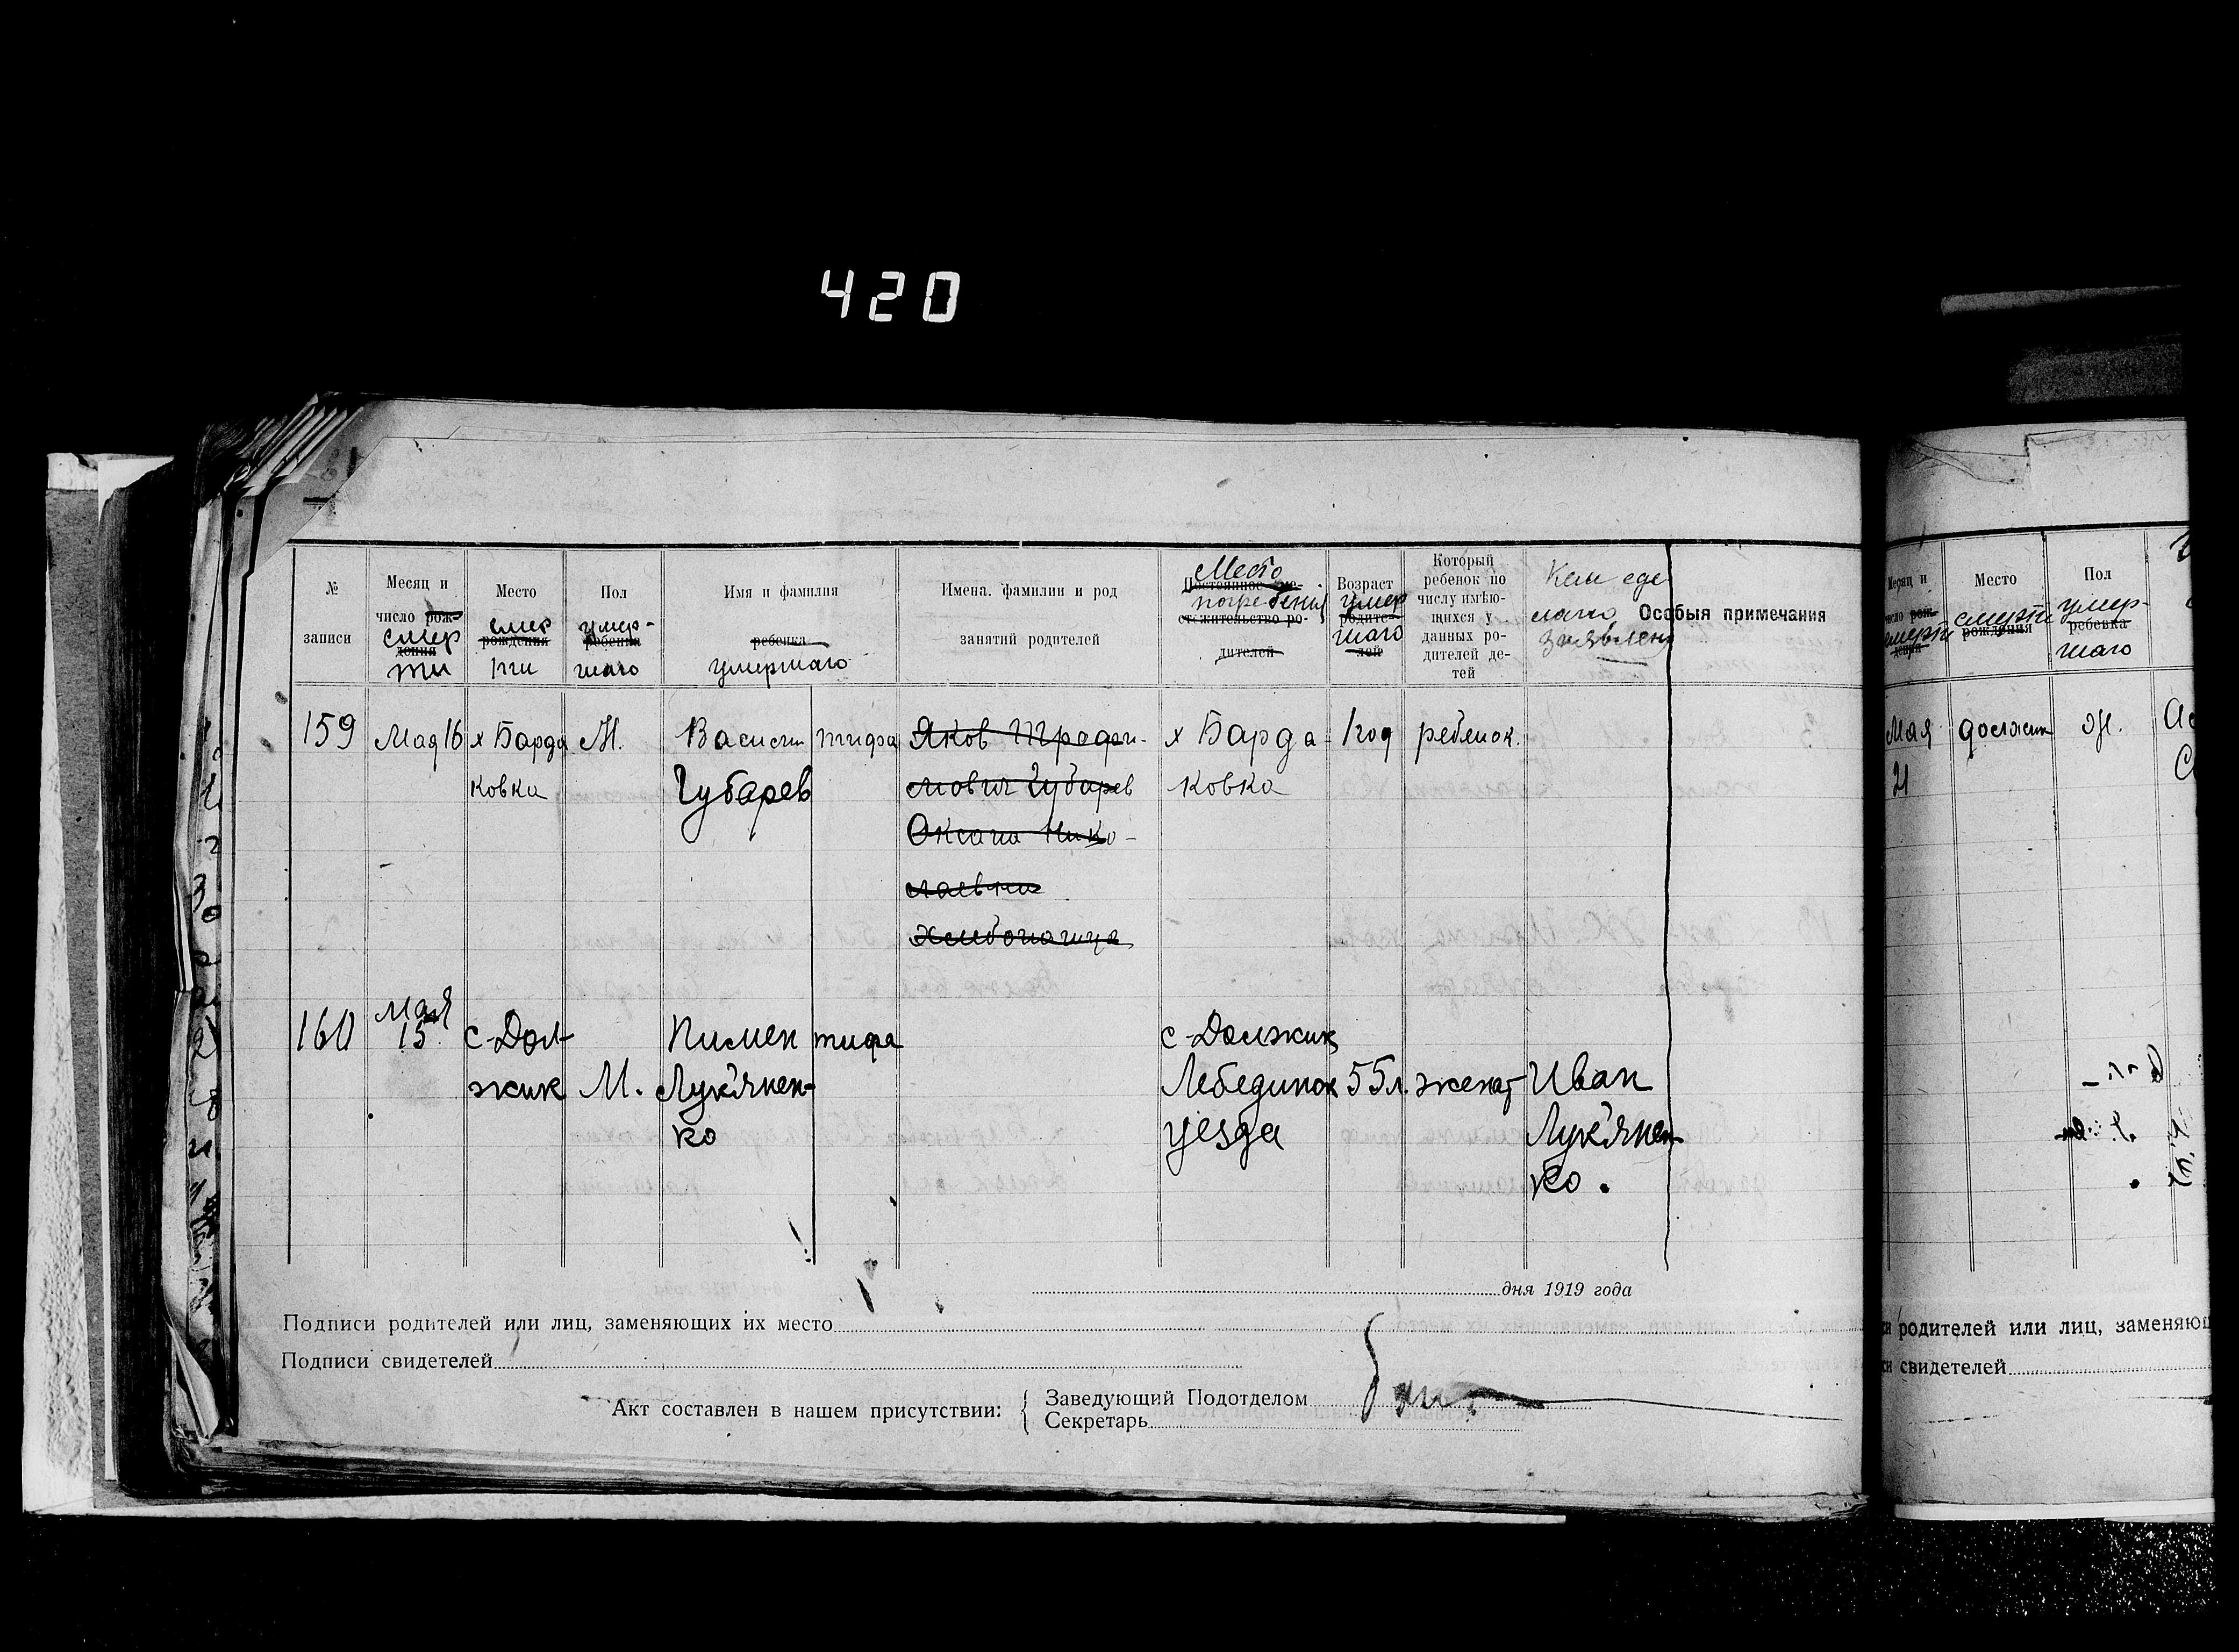 420
№ записи
Месяц и число рож- дения
смер ти
Место рождения
смер ти
Пол ребенка
умер- шаго
Имя и фамилия ребенка
умершаго
Имена. фамилии и род занятий родителей
Место погребения
Постоянное ме- сто жительство ро- дителей
Возраст родите- лей
умер шаго
Который ребенок по числу имѣю- щихся у данных ро- дителей де- тей
Кем сде лано заявлен
Особыя примечания
159
Мая 16
х Барда
ковка
М.
Василий
Губарев
тифа
Яков Трофи-
мович Губарев
Оксана Нико-
лаевна
х Барда-
ковка
1 год
ребенок.
160
мая
15
с-Дол-
жик
М.
Пимен
Лук'янен-
ко
тифа
с-Должик
Лебединск
уезда
55л.
женат
Иван
Лук'янен-
ко.
дня 1919 года
Подписи родителей или лиц, заменяющих их место
Подписи свидетелей
Акт составлен в нашем присутствии:
Заведующий Подотделом
Секретарь
Месяц и
число рож-
смерти
дения
Место
смерти
рождения
Пол
умер-
ребенка
шаго
Мая
21
должик
Ж.
родителей или лиц, заменяющ
свидетелей